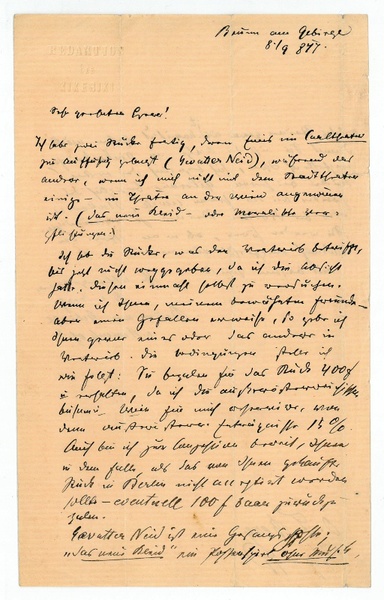 Brunn am Gebirge
8./9 877.
Sehr geehrter Herr!
Ich habe zwei Stücke fertig, deren eines im Carltheater
zur Aufführung gelangt (Gevatter Neid), während das
andere, wenn ich mich nicht mit dem Stadttheater
einige – im Theater an der Wien angenommen
ist. (Das neue Kleid – oder
Ich habe die Stücke, was den Vertrieb betrifft,
bis jetzt nicht weggegeben, da ich die Absicht
hatte, diesen einmal selbst zu versuchen.
Wenn ich Ihnen, meinem bewährten Freunde
aber einen Gefallen erweise, so gebe ich
Ihnen gerne eines oder das andere in
Vertrieb. Die Bedingungen stelle ich
wie folgt: Sie bezahlen für das Stück 400 f
da ich die außerösterreichischen
Bühnen – Wien für mich reservire, von
dem 15 %.
Auch bin ich zur Concession bereit, Ihnen
in dem Falle, als das von Ihnen gekaufte
Stück in Berlin nicht acceptirt werden
sollte – eventuell 100 f baar zurückzu-
zahlen.
Gevatter Neid ist eine Gesangsposse,
„Das neue Kleid" ein ohne Musik.